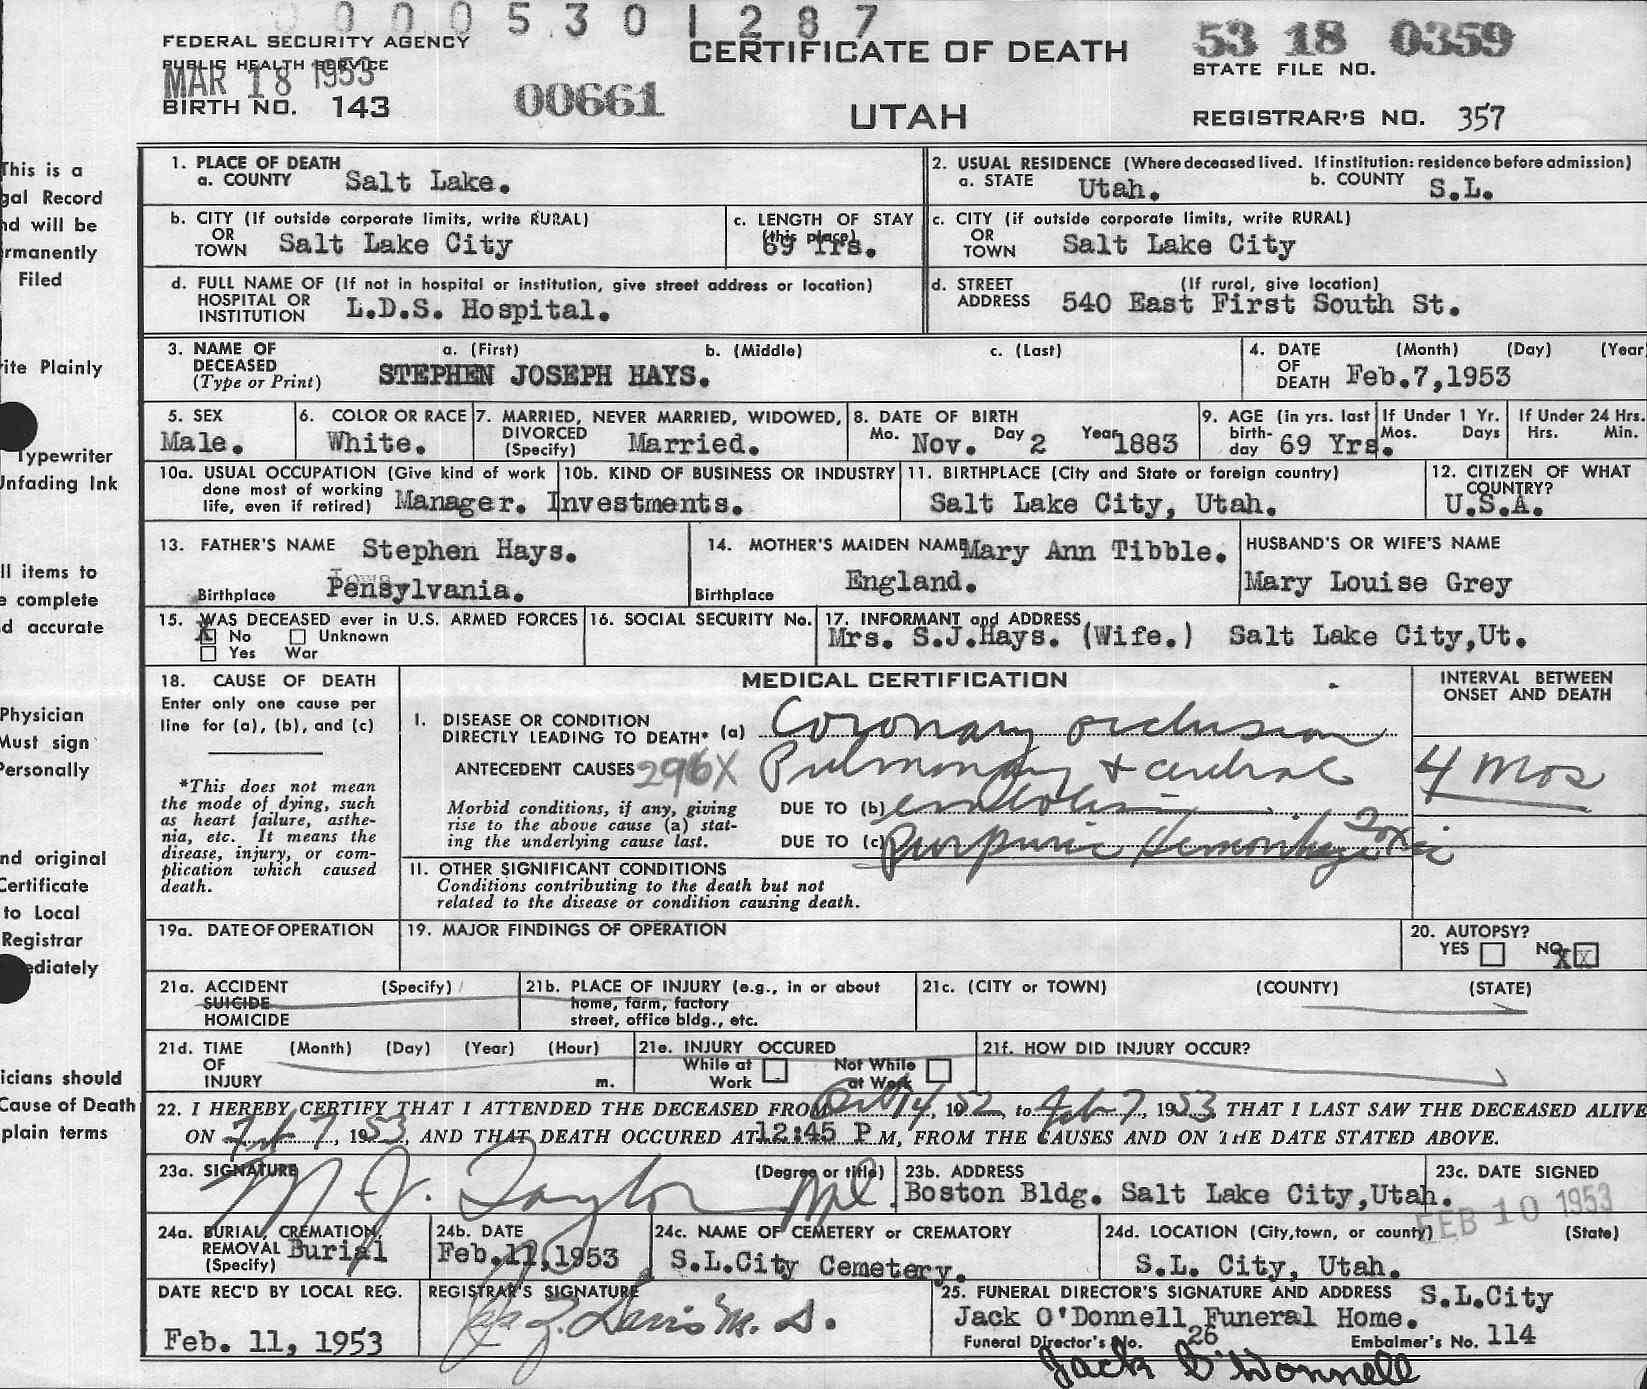 0 0 0 5 3 0 1 2 8 7
FEDERAL SECURITY AGENCY
PUBLIC HEALTH SERVICE
MAR 18 1953
BIRTH NO. 143
00661
CERTIFICATE OF DEATH
UTAH
53 18 0359
STATE FILE NO.
REGISTRAR'S NO. 357
This is a
gal Record
nd will be
rmanently
Filed
ite Plainly
Typewriter
Unfading Ink
ll items to
e complete
d accurate
Physician
Must sign
Personally
nd original
Certificate
to Local
Registrar
ediately
icians should
Cause of Death
plain terms
1. PLACE OF DEATH
a. COUNTY Salt Lake.
2. USUAL RESIDENCE (Where deceased lived. If institution: residence before admission)
a. STATE Utah. b. COUNTY S.L.
b. CITY (If outside corporate limits, write RURAL)
OR
TOWN Salt Lake City
c. LENGTH OF STAY
(this place)
69 Yrs.
c. CITY (if outside corporate limits, write RURAL)
OR
TOWN Salt Lake City
d. FULL NAME OF (If not in hospital or institution, give street address or location)
HOSPITAL OR
INSTITUTION L.D.S. Hospital.
d. STREET (If rural, give location)
ADDRESS 540 East First South St.
3. NAME OF DECEASED (Type or Print)
a. (First) b. (Middle) c. (Last)
STEPHEN JOSEPH HAYS.
4. DATE OF DEATH (Month) (Day) (Year
Feb.7,1953
5. SEX
Male.
6. COLOR OR RACE
White.
7. MARRIED, NEVER MARRIED, WIDOWED,
DIVORCED
(Specify) Married.
8. DATE OF BIRTH
Mo. Nov. Day 2 Year 1883
9. AGE (in yrs. last
birth-
day 69 Yrs.
If Under 1 Yr.
Mos. Days
If Under 24 Hrs.
Hrs. Min.
10a. USUAL OCCUPATION (Give kind of work
done most of working
life, even if retired) Manager.
10b. KIND OF BUSINESS OR INDUSTRY
Investments.
11. BIRTHPLACE (City and State or foreign country)
Salt Lake City, Utah.
12. CITIZEN OF WHAT
COUNTRY?
U.S.A.
13. FATHER'S NAME Stephen Hays.
Iowa
Birthplace Pensylvania.
14. MOTHER'S MAIDEN NAME Mary Ann Tibble.
Birthplace England.
HUSBAND'S OR WIFE'S NAME
Mary Louise Grey
15. WAS DECEASED ever in U.S. ARMED FORCES
X No Unknown
Yes War
16. SOCIAL SECURITY No.
17. INFORMANT and ADDRESS
Mrs. S.J.Hays. (Wife.) Salt Lake City,Ut.
18. CAUSE OF DEATH
Enter only one cause per
line for (a), (b), and (c)
*This does not mean
the mode of dying, such
as heart failure, asthe-
nia, etc. It means the
disease, injury, or com-
plication which caused
death.
MEDICAL CERTIFICATION
INTERVAL BETWEEN
ONSET AND DEATH
I. DISEASE OR CONDITION
DIRECTLY LEADING TO DEATH* (a) Coronary occlusion
ANTECEDENT CAUSES 296X Pulmonary + cerebral
4 Mos
Morbid conditions, if any, giving
rise to the above cause (a) stat-
ing the underlying cause last.
DUE TO (b) embolism
DUE TO (c) Purpuric Hemorrhagic Toxi
II. OTHER SIGNIFICANT CONDITIONS
Conditions contributing to the death but not
related to the disease or condition causing death.
19a. DATE OF OPERATION
19. MAJOR FINDINGS OF OPERATION
20. AUTOPSY?
YES NO X X
21a. ACCIDENT (Specify)
SUICIDE
HOMICIDE
21b. PLACE OF INJURY (e.g., in or about
home, farm, factory
street, office bldg., etc.
21c. (CITY or TOWN) (COUNTY) (STATE)
21d. TIME (Month) (Day) (Year) (Hour)
OF
INJURY m.
21e. INJURY OCCURED
While at Work Not While at Work
21f. HOW DID INJURY OCCUR?
22. I HEREBY CERTIFY THAT I ATTENDED THE DECEASED FROM Oct 14, 1952, to Feb 7, 1953 THAT I LAST SAW THE DECEASED ALIVE
ON Feb 7, 1953, AND THAT DEATH OCCURED AT 12:45 P M, FROM THE CAUSES AND ON THE DATE STATED ABOVE.
23a. SIGNATURE (Degree or title)
M. J. Taylor MD.
23b. ADDRESS
Boston Bldg. Salt Lake City,Utah.
23c. DATE SIGNED
FEB 10 1953
24a. BURIAL, CREMATION,
REMOVAL
(Specify) Burial
24b. DATE
Feb.11,1953
24c. NAME OF CEMETERY OR CREMATORY
S.L.City Cemetery.
24d. LOCATION (City, town, or county) (State)
S.L. City, Utah.
DATE REC'D BY LOCAL REG.
Feb. 11, 1953
REGISTRAR'S SIGNATURE
Davis M. D.
25. FUNERAL DIRECTOR'S SIGNATURE AND ADDRESS S.L.City
Jack O'Donnell Funeral Home.
Funeral Director's No. 26 Embalmer's No. 114
Jack O'Donnell